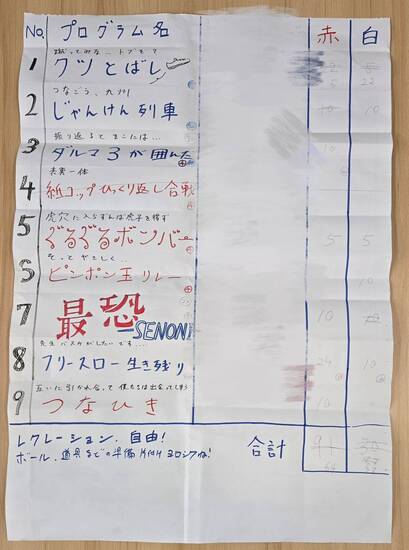 No. プログラム名 赤 白
蹴ってみな、トブぞ?
1 クツとばし
つなごう、九州
2 じゃんけん列車 10 10
振り返るとそこには…
3 ダルマ3が囲んだ 10
夫美一体
4 紙コップひっくり返し合戦
虎穴に入らずんば虎子を得ず
5 ぐるぐるボンバー 5 5
そっとやさしく…
6 ピンポン玉リレー 10
7 最恐SENON 10
先生バスケがしたいです…
8 フリースロー生き残り 24 10
互いに引かれ合って僕たちは出会ってしまう
9 つなひき 10
レクレーション、自由!
ボール、道具などの準備 片付け ヨロシクね! 合計 91